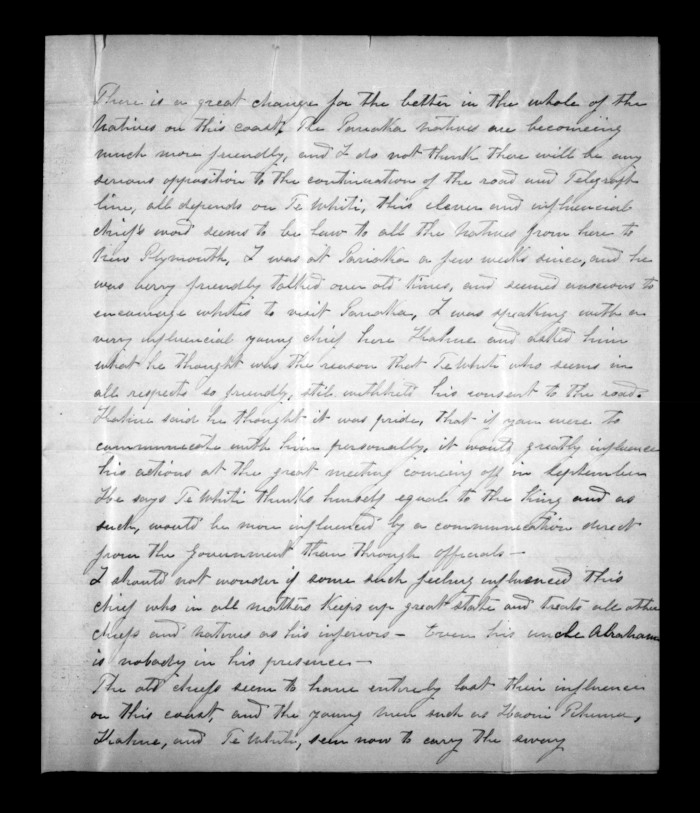 There is a great change for the better in the whole of the
Natives on this coast, The Pariaka Natives are becomeing
much more friendly, and I do not think there will be any
serious opposition to the continuation of the road and Telegraph
line, all depends on Te Whiti, this clever and influencial
chief's word seems to be law to all the Natives from here to
New Plymouth, I was at Pariaka a few weeks since, and he
was very friendly talked over old times, and seemed anxious to
encourage whites to visit Pariaka, I was speaking with a
very influencial young chief here and asked him
what he thought was the reason that Te Whiti who seems in
all respects so friendly, still withheld his consent to the road.
said he thought it was pride, that if you were to
communicate with him personally, it would greatly influence
his actions at the great meeting comeing off in September
He says Te Whiti thinks himself equal to the King and as
such, would be more influenced by a communication direct
from the Government than through officials —
I should not wonder if some such feeling influenced this
chief who in all matters keeps up great state and treats all other
chiefs and natives as his inferiors — Even his uncle Abraham
is nobody in his presence —
The old chiefs seem to have entirely lost their influence
on this coast, and the young men such as Pihama,
and Te Whiti, seem now to carry the sway